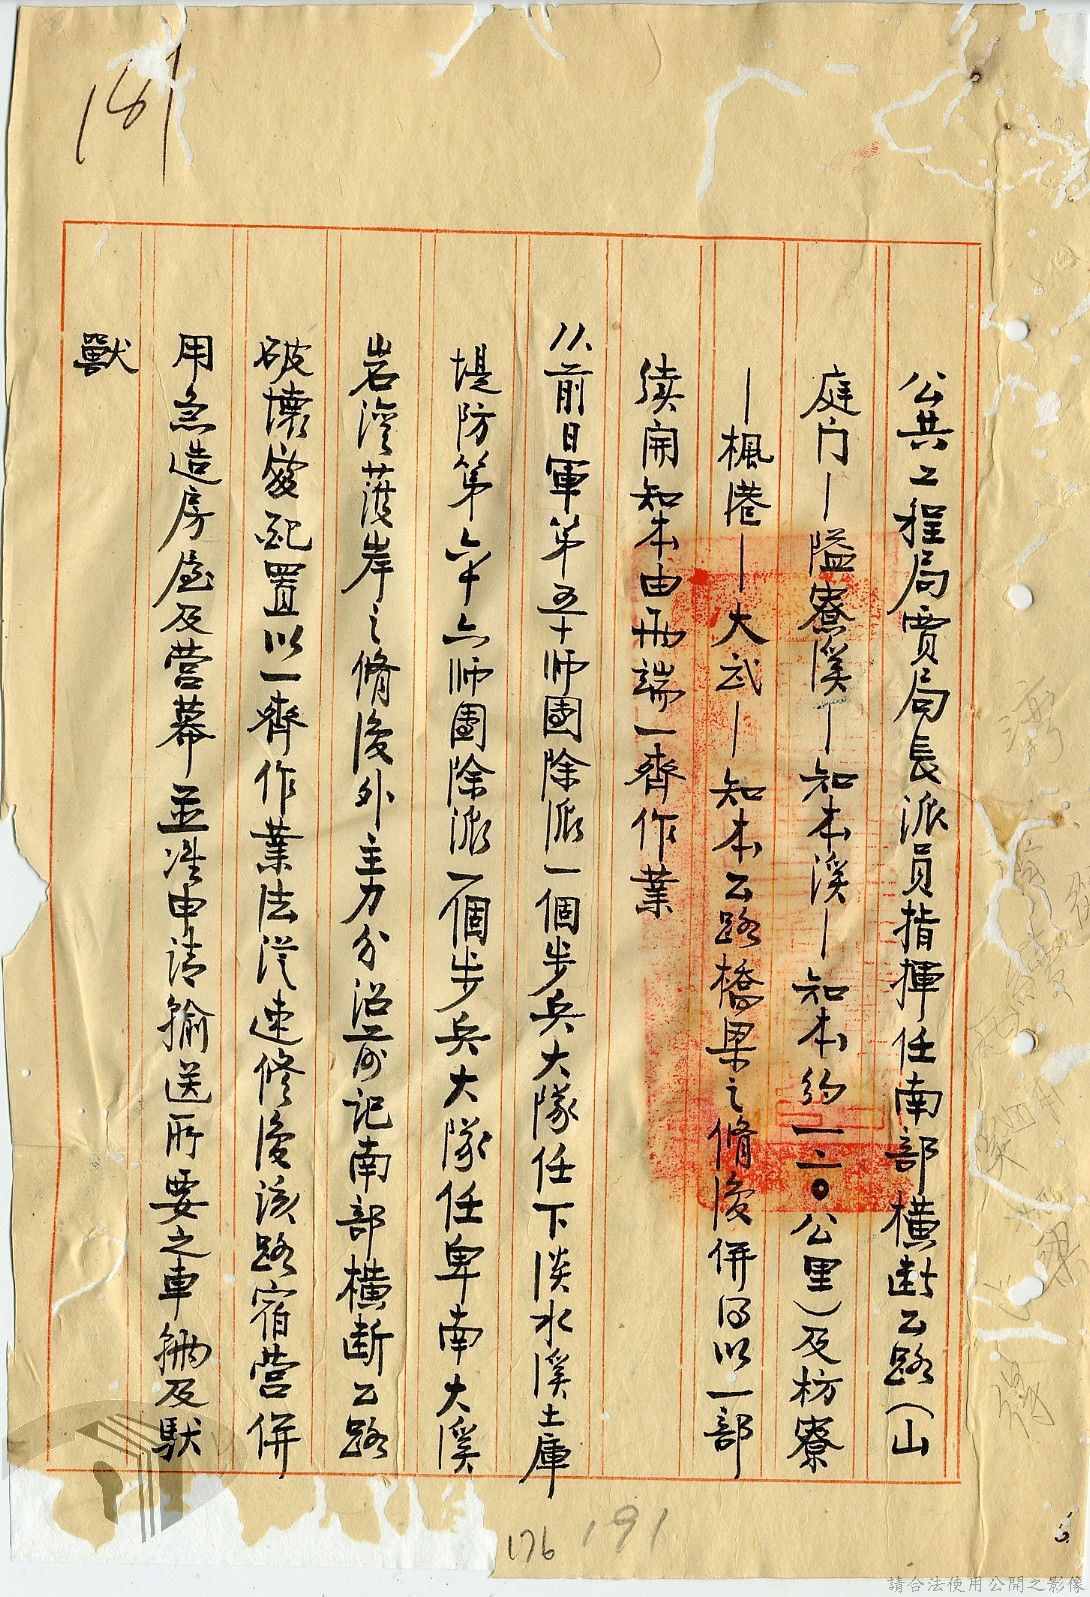 181
公共工程局賈局長派員指揮任南部橫断公路（山
庭门－隘寮溪－知本溪－知本約一二〇公里）及枋寮
－楓港－大武－知本公路橋梁之脩復併得以一部
续開知本由兩端一齊作業
八、前日軍第五十師團除派一個步兵大隊任下淡水溪土庫
堤防第六十六師團除派一個步兵大隊任卑南大溪
岩湾護岸之脩復外主力分沿前记南部橫断公路
破壞處配置以一齊作業法從速修復该路宿营併
用急造房屋及营幕並准申请输送所要之車輛及馱
獸
176
191
請合法使用公開之影像